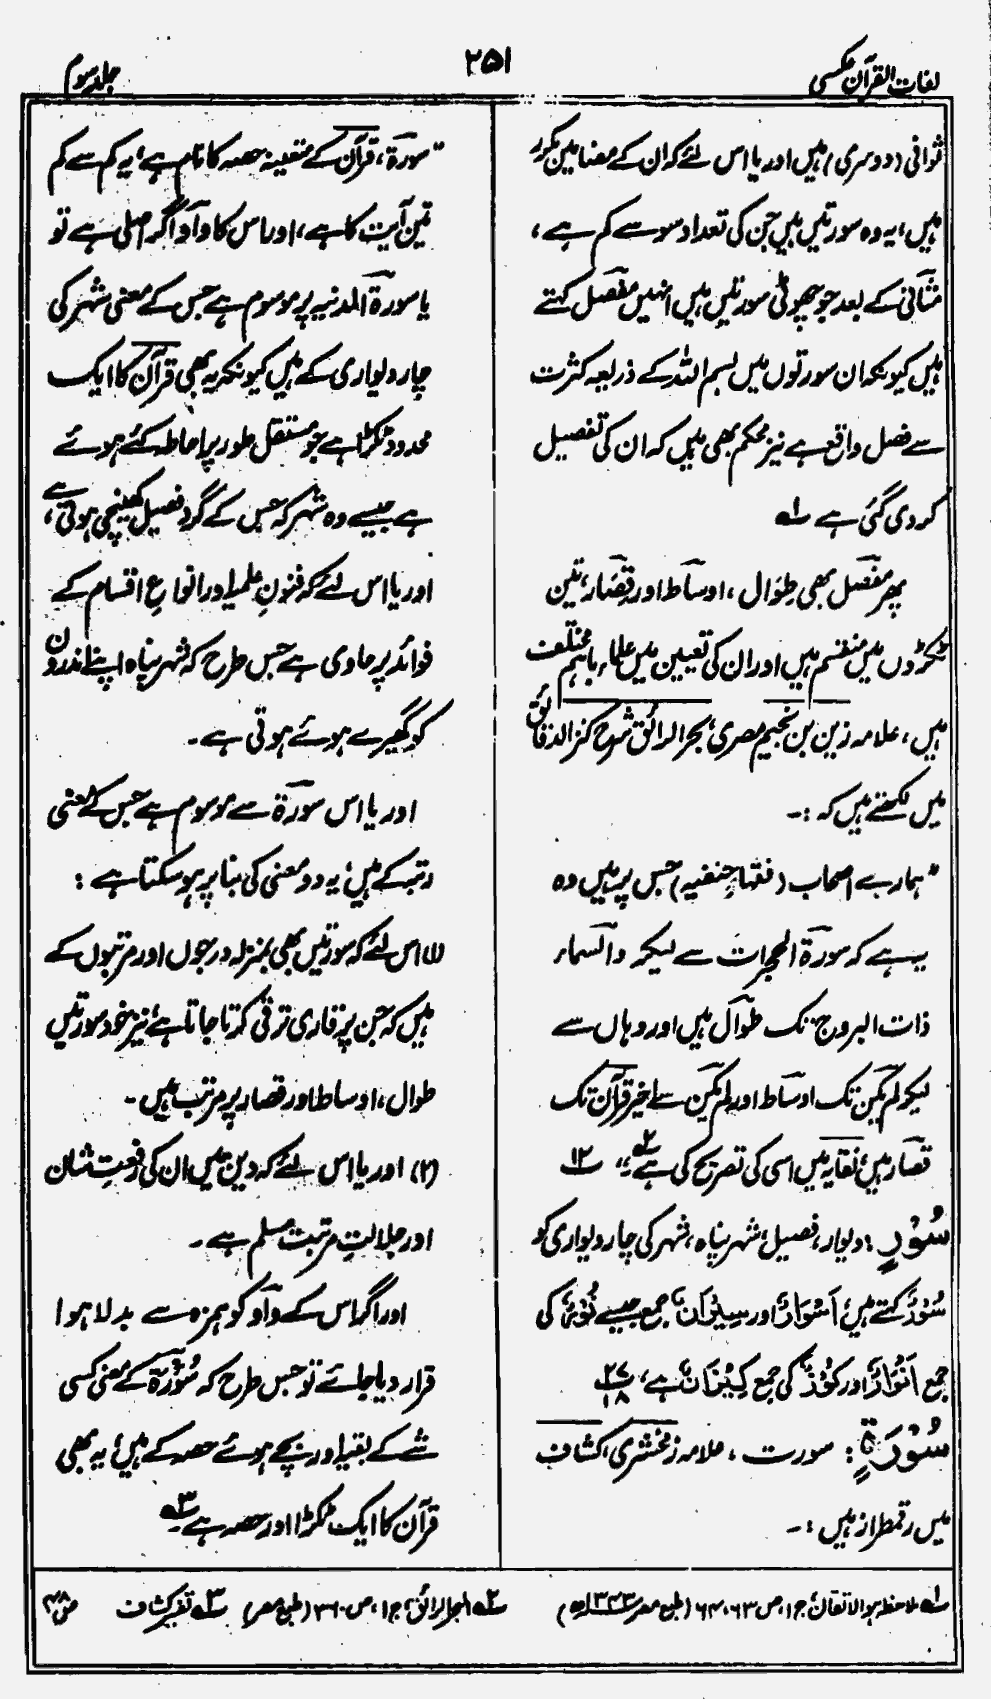 لغات القرآن عکسی
۲۵۱
جلد سوم
ثوانی (دوسری) ہیں اور یا اس لئے کہ ان کے مضامین مکرر
ہیں، یہ وہ سورتیں ہیں جن کی تعداد سو سے کم ہے،
مثانی کے بعد جو چھوٹی سورتیں ہیں انہیں مفصل کہتے
ہیں کیونکہ ان سورتوں میں بسم اللہ کے ذریعہ کثرت
سے فصل واقع ہے نیز محکم بھی ہیں کہ ان کی تفصیل
کر دی گئی ہے ۱؎
پھر مفصل بھی طوال، اوساط اور قصار، تین
ٹکڑوں میں منقسم ہیں اور ان کی تعیین میں علماء باہم مختلف
ہیں، علامہ زین بن نجیم مصری، بحر الرائق شرح کنز الدقائق
میں لکھتے ہیں کہ :۔
"ہمارے اصحاب (فقہاءِ حنفیہ) جس پر ہیں وہ
یہ ہے کہ سورۃ الحجرات سے لیکر والسماء
ذات البروج" تک طوال ہیں اور وہاں سے
لیکر لم یکن تک اوساط اور لم یکن سے اخیر قرآن تک
قصار ہیں، نقایہ میں اسی کی تصریح کی ہے" ۲؎ ۱۲
سُوْرٍ : دیوار، فصیل، شہر پناہ، شہر کی چار دیواری کو
سُوْرٌ کہتے ہیں، اَسْوَارٌ اور سِیْرَانٌ جمع جیسے نُوْرٌ کی
جمع اَنْوَارٌ اور کُوْزٌ کی جمع کِیْزَانٌ ہے، ۲۷/۱۸
سُوْرَۃٍ : سورت، علامہ زمخشری، کشاف
میں رقمطراز ہیں :۔
"سورۃ، قرآن کے متعینہ حصہ کا نام ہے، یہ کم سے کم
تین آیت کا ہے، اور اس کا واؤ اگر اصلی ہے تو
یا سورۃ المدنیہ پر موسوم ہے جس کے معنی شہر کی
چار دیواری کے ہیں کیونکہ یہ بھی قرآن کا ایک
محدود ٹکڑا ہے جو مستقل طور پر احاطہ کئے ہوئے
ہے جیسے وہ شہر کہ جس کے گرد فصیل کھینچی ہوتی ہے،
اور یا اس لئے کہ فنونِ علمیہ اور انواعِ اقسام کے
فوائد پر حاوی ہے جس طرح کہ شہر پناہ اپنے اندرون
کو گھیرے ہوئے ہوتی ہے۔
اور یا اس سورۃ سے موسوم ہے جس کے معنی
رتبہ کے ہیں، یہ دو معنی کی بنا پر ہو سکتا ہے :
(۱) اس لئے کہ سورتیں بھی بمنزلہ درجوں اور مرتبوں کے
ہیں کہ جن پر قاری ترقی کرتا جاتا ہے، نیز خود سورتیں
طوال، اوساط اور قصار پر مرتب ہیں۔
(۲) اور یا اس لئے کہ دین میں ان کی رفعتِ شان
اور جلالتِ مرتبت مسلم ہے۔
اور اگر اس کے واؤ کو ہمزہ سے بدلا ہوا
قرار دیا جائے تو جس طرح کہ سُؤْرَۃ کے معنی کسی
شے کے بقیہ اور بچے ہوئے حصہ کے ہیں، یہ بھی
قرآن کا ایک ٹکڑا اور حصہ ہے" ۳؎
۱؎ ملاحظہ ہو الاتقان، ج ۱، ص ۶۳، ۶۴ (طبع مصر ۱۳۴۳ھ) ۲؎ البحر الرائق، ج ۱، ص ۳۶۰ (طبع مصر) ۳؎ تفسیر کشاف